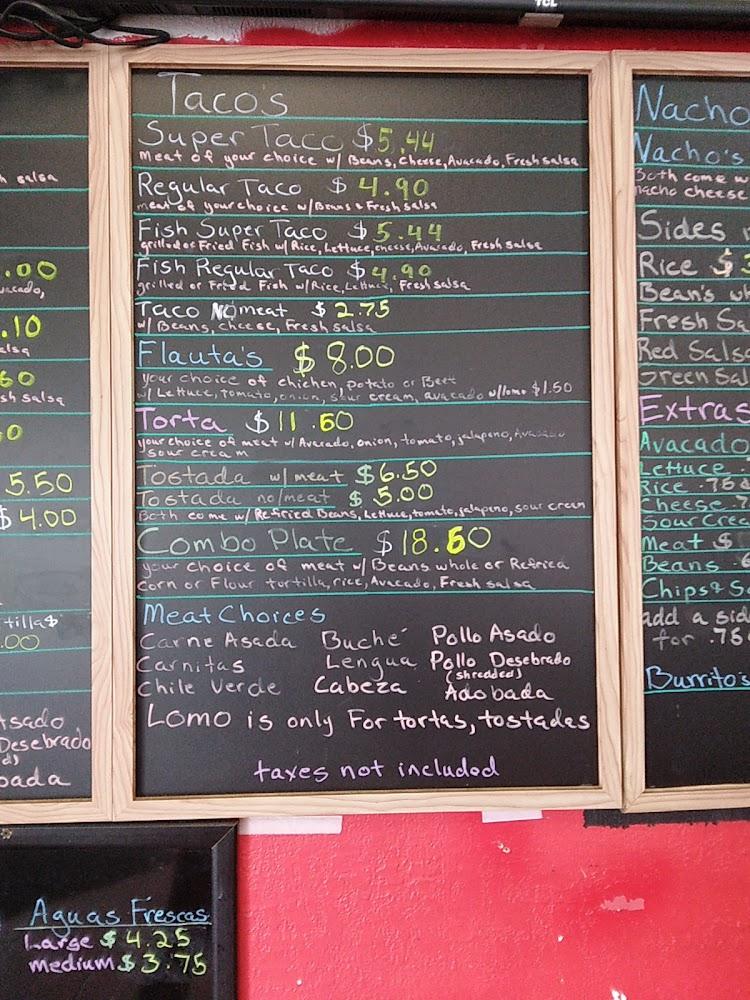 TCL
h salsa
.00
vacado,
.10
alsa
.60
sh salsa
0
5.50
$ 4.00
tillas
.00
Asado
Desebrado
d)
bada
Tacos
Super Taco $5.44
Meat of your choice w/ Beans, Cheese, Avacado, Fresh salsa
Regular Taco $ 4.90
meat of your choice w/Beans & Fresh salsa
Fish Super Taco $5.44
grilled or Fried Fish w/ Rice, Lettuce, cheese, Avacado, Fresh salsa
Fish Regular Taco $4.90
grilled or Fried Fish w/Rice, Lettuce, Fresh salsa
Taco NO meat $ 2.75
w/ Beans, cheese, Fresh salsa
Flauta's $ 8.00
your choice of chicken, potato or Beef
w/ Lettuce, tomato, onion, sour cream, avacado w/lomo $1.50
Torta $ 11.50
your choice of meat w/ Avacado, onion, tomato, jalapeno, Avacado
sour cream
Tostada w/ meat $6.50
Tostada no/meat $ 5.00
Both come w/ Refried Beans, Lettuce, tomato, jalapeno, sour cream
Combo Plate $18.50
your choice of meat w/ Beans whole or Refried
corn or Flour tortilla, rice, Avacado, Fresh salsa
Meat Choices
Carne Asada Buché Pollo Asado
Carnitas Lengua Pollo Desebrado
(shredded)
Chile Verde Cabeza Adobada
Lomo is only For tortas, tostadas
taxes not included
Nacho
Nacho's
Both come w
nacho cheese
Sides
Rice $3
Bean's wh
Fresh Sa
Red Salsa
Green Sal
Extras
Avacado
Lettuce .
Rice .75
Cheese .7
Sour Crea
Meat $
Beans .6
Chips & Sa
add a sid
for .75
Burrito's
Aguas Frescas
Large $ 4.25
medium $ 3.75